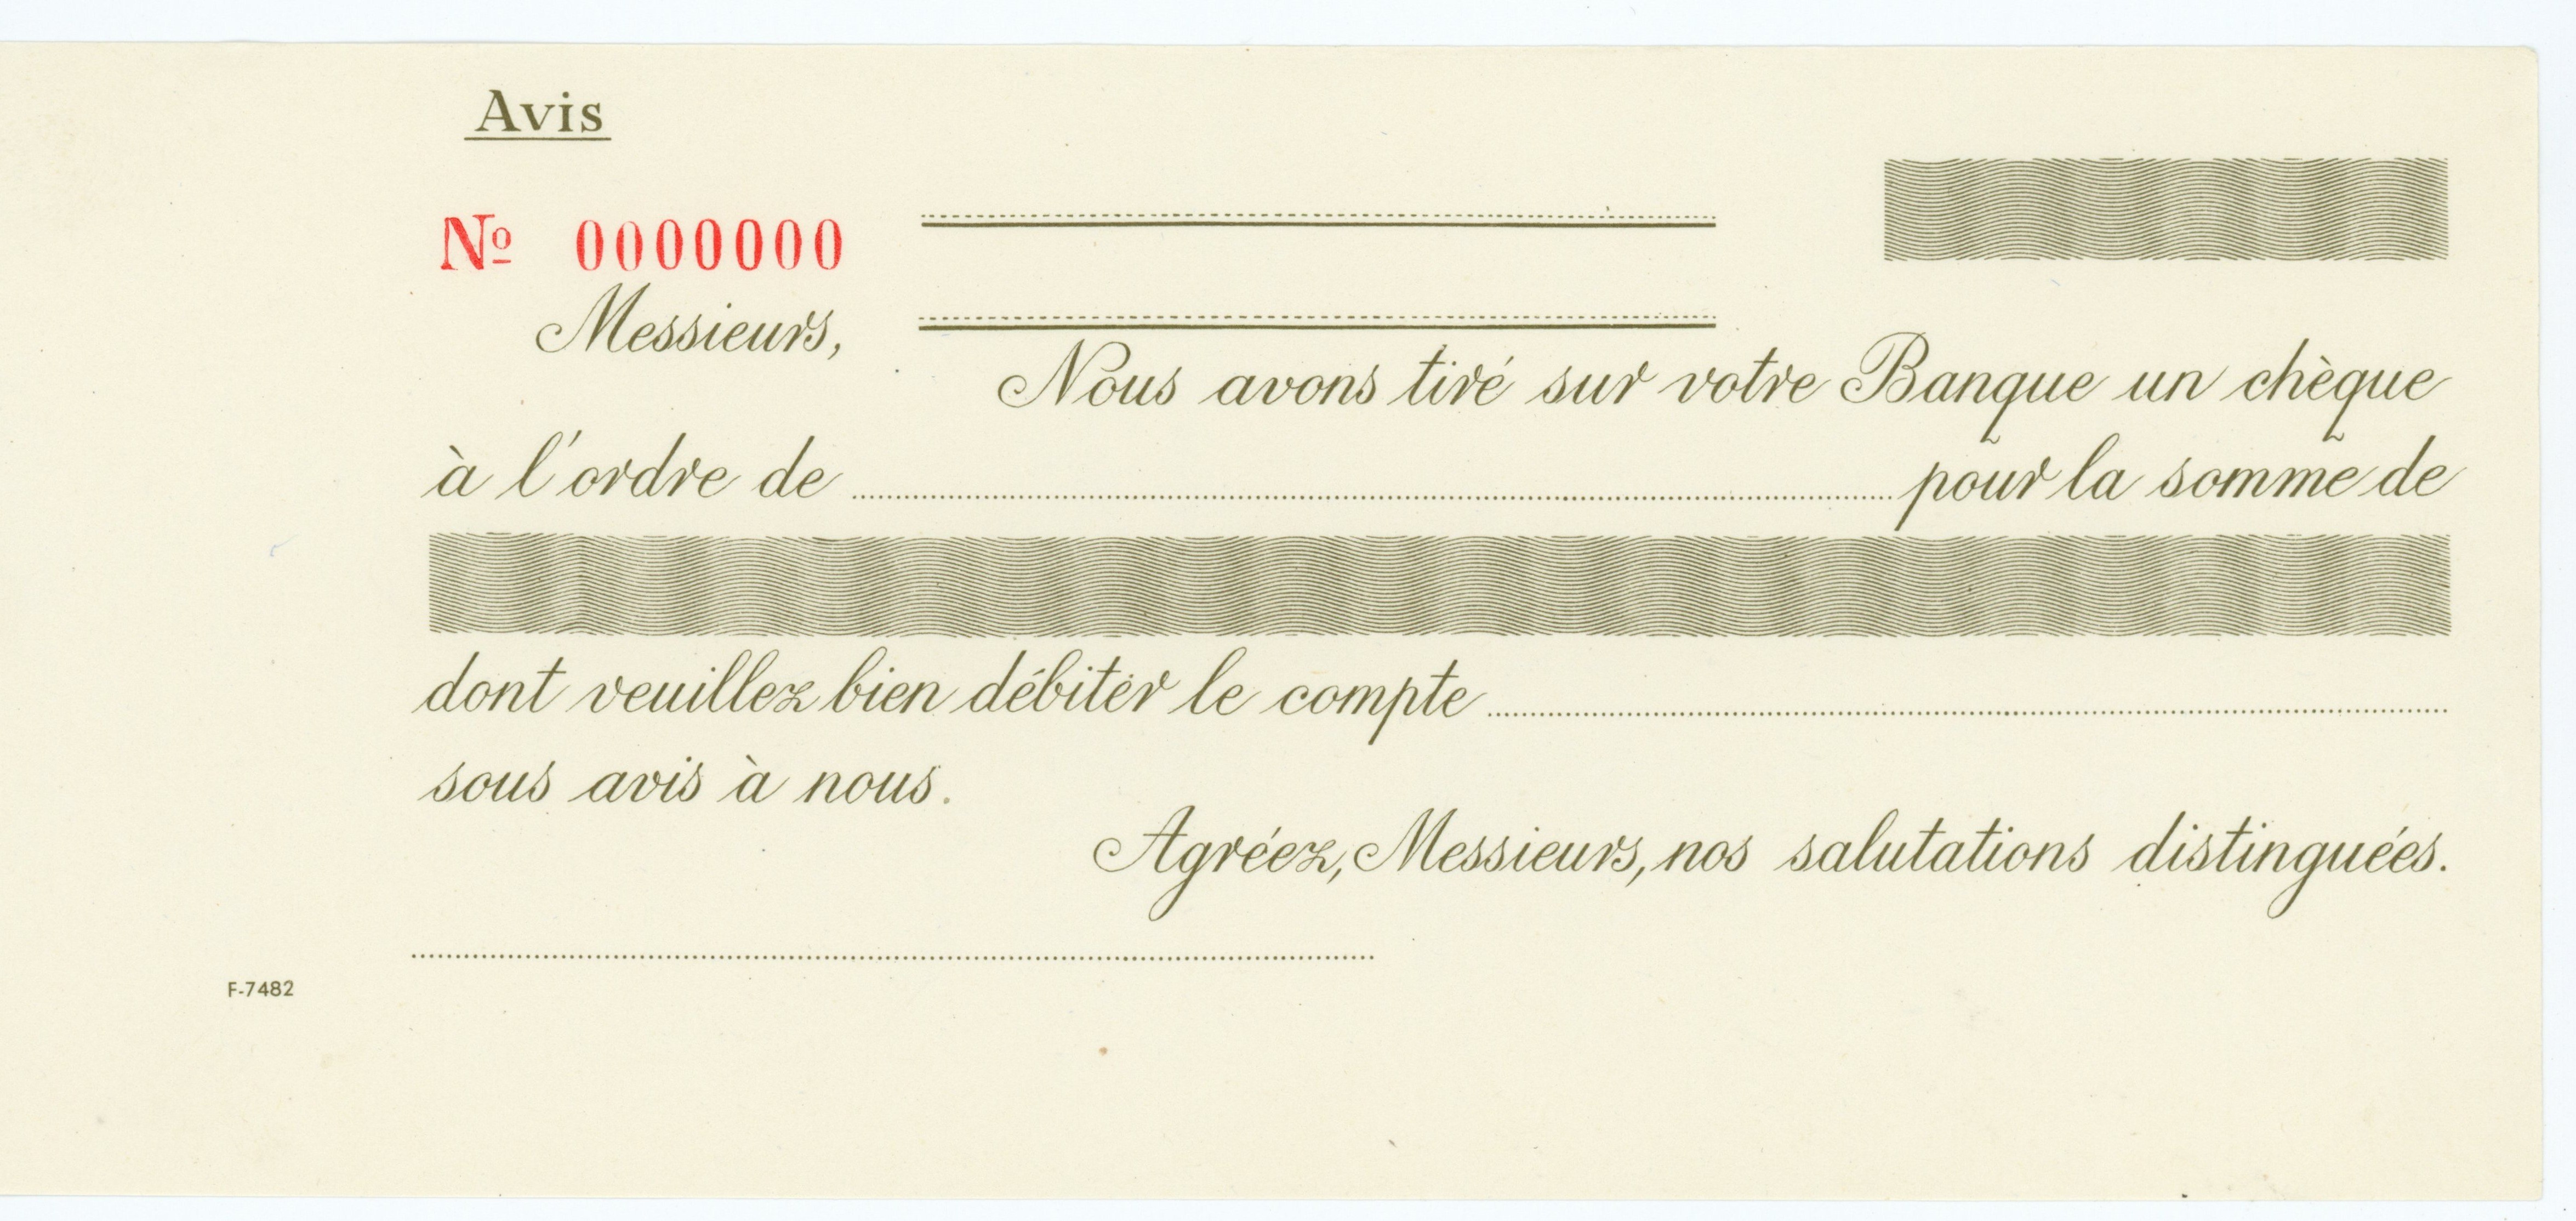 Avis
Nº 0000000
Messieurs,
Nous avons tiré sur votre Banque un chèque
à l'ordre de pour la somme de
dont veuillez bien débiter le compte
sous avis à nous.
Agréez, Messieurs, nos salutations distinguées.
F-7482